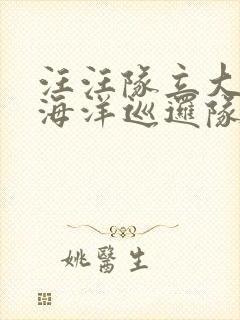 汪汪隊立大
海洋巡邏隊
姚醫生